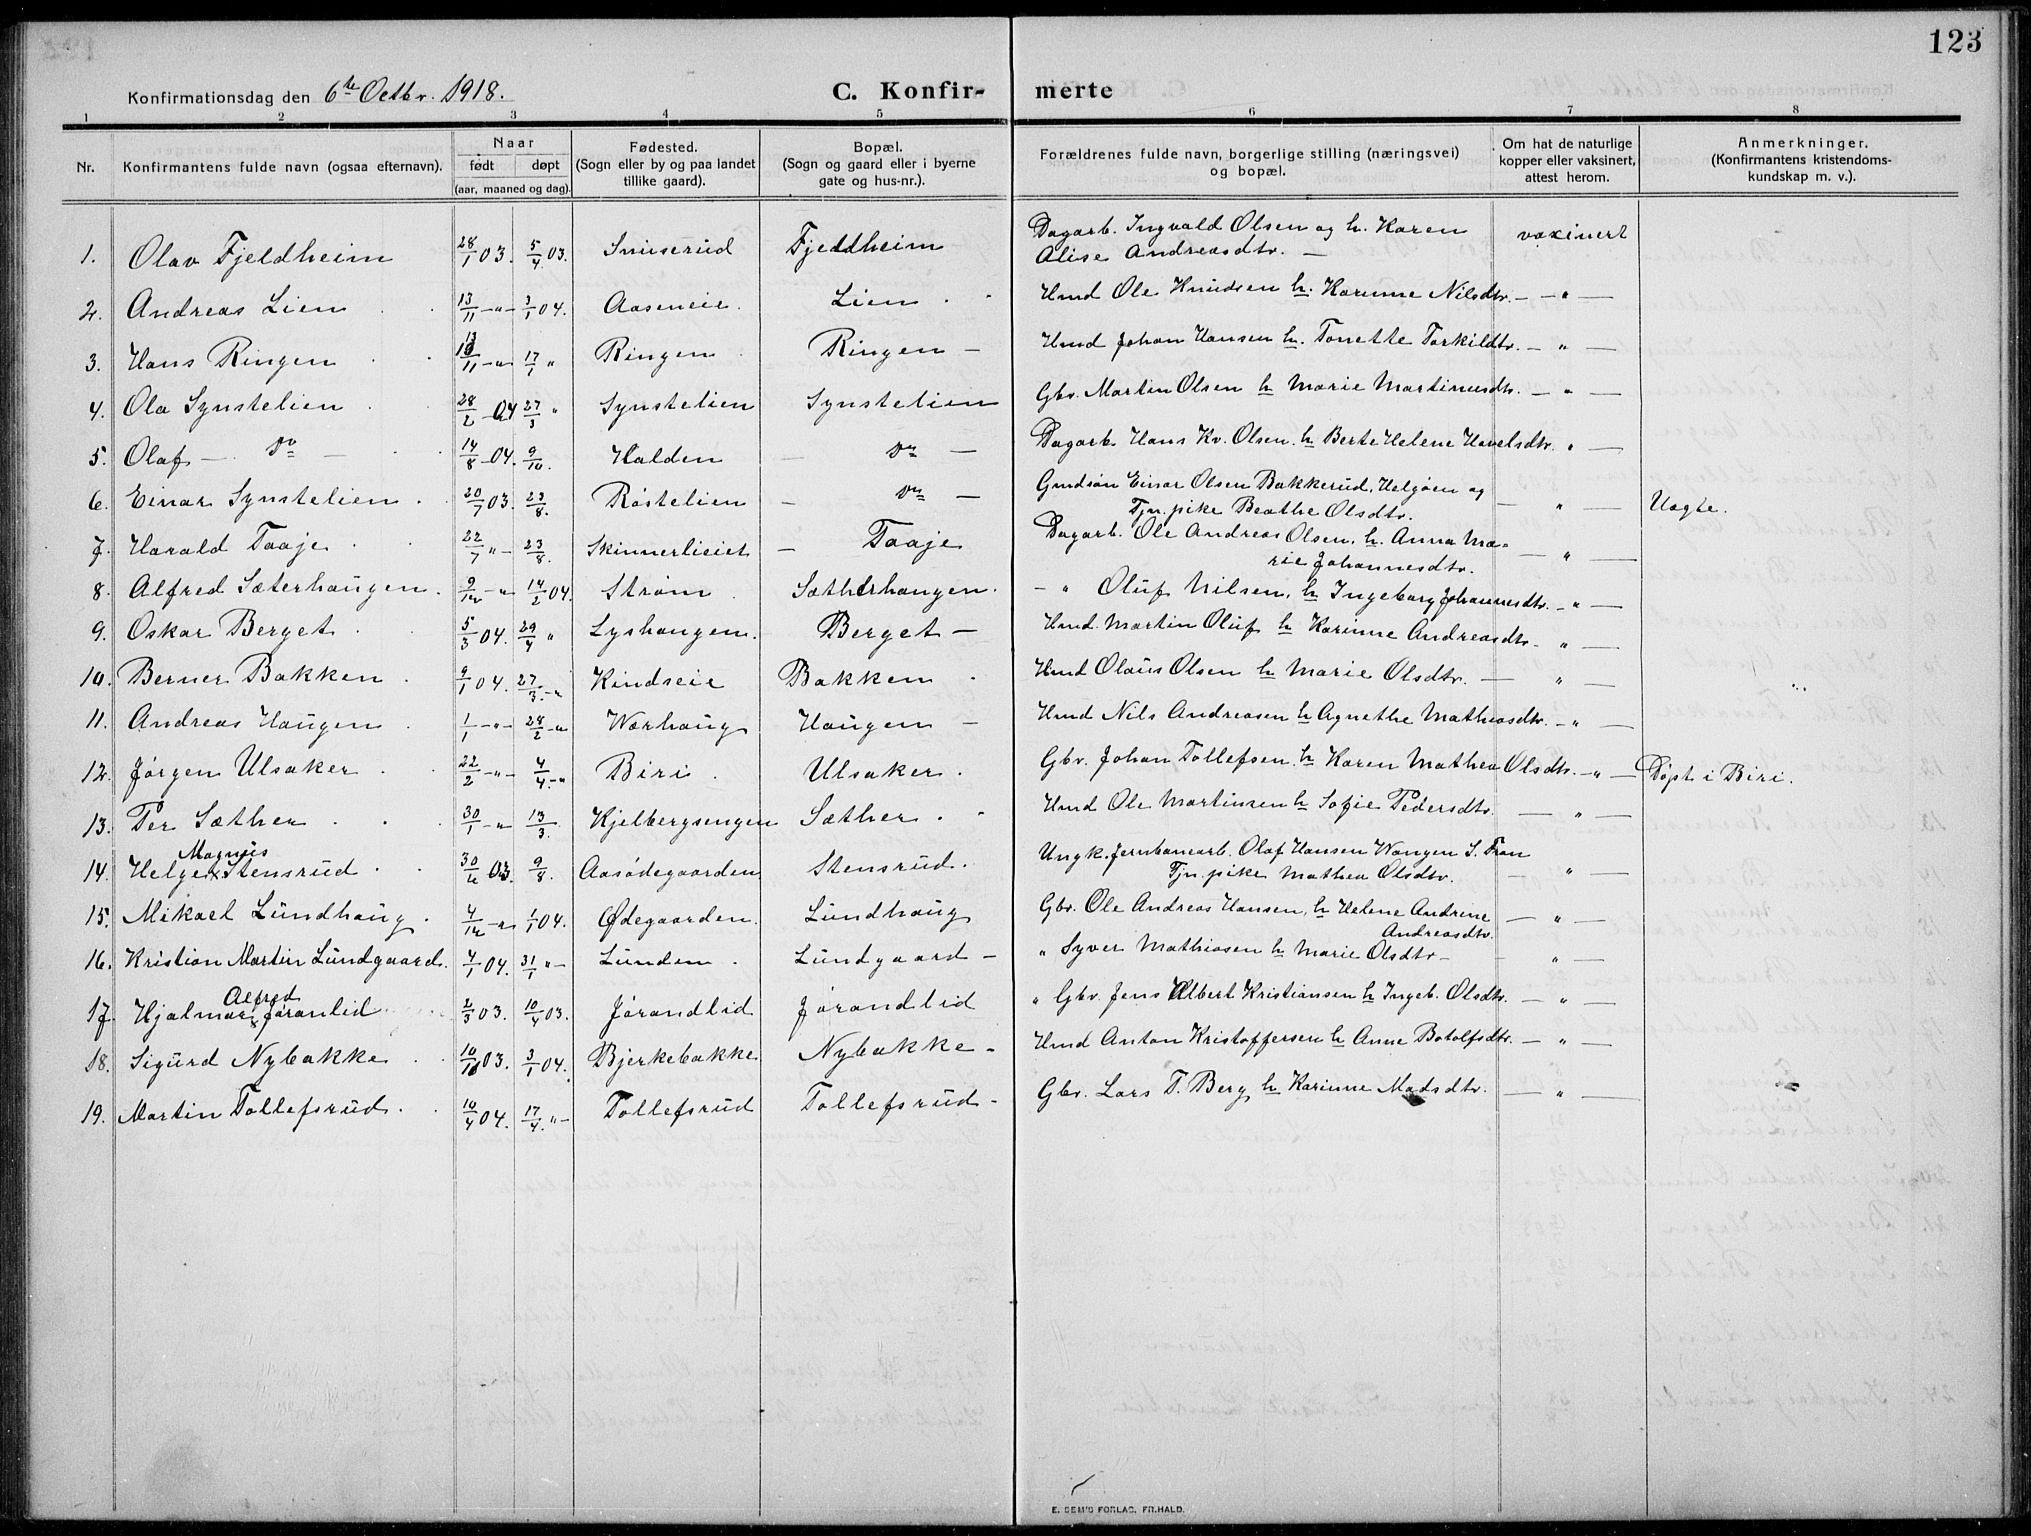 123
Konfirmationsdag den 6te Octbr. 1918. C. Konfir- merte
1 2 3 4 5 6 7 8
Nr. Konfirmantens fulde navn (ogsaa efternavn). Naar født døpt (aar, maaned og dag). Fødested. (Sogn eller by og paa landet tillike gaard). Bopæl. (Sogn og gaard eller i byerne gate og hus-nr.). Forældrenes fulde navn, borgerlige stilling (næringsvei) og bopæl. Om hat de naturlige kopper eller vaksinert, attest herom. Anmerkninger. (Konfirmantens kristendoms- kundskap m. v.).
1. Olav Fjeldheim 28/1 03. 5/4 03. Sniiserud Fjeldheim Dagarb. Ingvald Olsen og h. Karen vaxinert
Alise Andreasdtr. —
2. Andreas Lien 13/11 -"- 3/1 04. Aaseneie. Lien Hmd Ole Knudsen h. Karinne Nilsdtr. — " —
3. Hans Ringen 13/11 -"- 17/1 " Ringen Ringen — Hmd Johan Hansen h. Tonette Torkildtr. — " —
4. Ola Synstelien 28/2 04 27/3 " Synstelien Synstelien Gbr. Martin Olsen h Marie Martinusdtr. — " —
5. Olaf — do — 14/8 04. 9/10. Halden — do — Dagarb. Hans Kr. Olsen. h Berte Helene Havelsdtr. " —
6. Einar Synstelien 20/7 03. 23/8. Røstelien — do — Gmdsøn Einar Olsen Bakkerud, Helgøen og — " — Uagte.
Tjn. pike Beathe Olsdtr.
7. Harald Taaje 22/7 "- 23/8. Skinnerlieiet — Taaje Dagarb. Ole Andreas Olsen, h. Anna Ma= — " —
rie Johannesdtr.
8. Alfred Sæterhaugen. 9/12 -"- 14/2 04. Strøm Sætherhaugen. - " Oluf Nilsen, h Ingeborg Johannesdtr. - " —
9. Oskar Berget 5/3 04. 29/4 " Lyshaugen. Berget — Hmd. Martin Oluf h Karinne Andreasdtr. - " —
10. Berner Bakken 9/1 04. 27/3. -" Kindseie Bakken Hmd Olaus Olsen h Marie Olsdtr. — " —
11. Andreas Haugen 1/1 -"- 28/2 -" Warhaug Haugen — Hmd Nils Andreasen h Agnethe Mathiasdtr. - " —
12. Jørgen Ulsaker 22/2 -"- 4/4. -" Biri. Ulsaker. Gbr. Johan Tollefsen. h Karen Mathea Olsdtr. - " — Døpt i Biri.
13. Per Sæther 30/1 -" 13/3. Kjelbergsengen Sæther. Hmd Ole Martinsen h Sofie Pedersdtr. — " —
Magnus
14. Helge x Stensrud 30/6 03. 9/8. Aasødegaarden Stensrud. Ungk. Jernbanearb. Olaf Hansen Wangen S. Fron — " —
Tjn. pike Mathea Olsdtr.
15. Mikael Lundhaug. 4/12 -" 1/1 04. Ødegaarden. Lundhaug Gbr. Ole Andreas Hansen, h Helene Andrine — " —
Andreasdtr.
16. Kristian Martin Lundgaard. 4/1 04. 31/1 "- Lunden. Lundgaard — " Syver Mathiasen h Marie Olsdtr — " —
Alfred
17. Hjalmar x Jøranlid 2/3 03. 10/4 03. Jørandlid Jørandlid " Gbr. Jens Albert Kristiansen h Ingeb. Olsdtr. — " —
18. Sigurd Nybakke 10/10 03. 3/1 04. Bjerkebakke Nybakke - Hmd Anton Kristoffersen h Anne Botolfsdtr. — " —
19. Martin Tollefsrud. 10/4 04. 17/4. "- Tollefsrud Tollefsrud - Gbr. Lars T. Berg h Karinne Madsdtr. — " —
E. SEM'S FORLAG, FR.HALD.